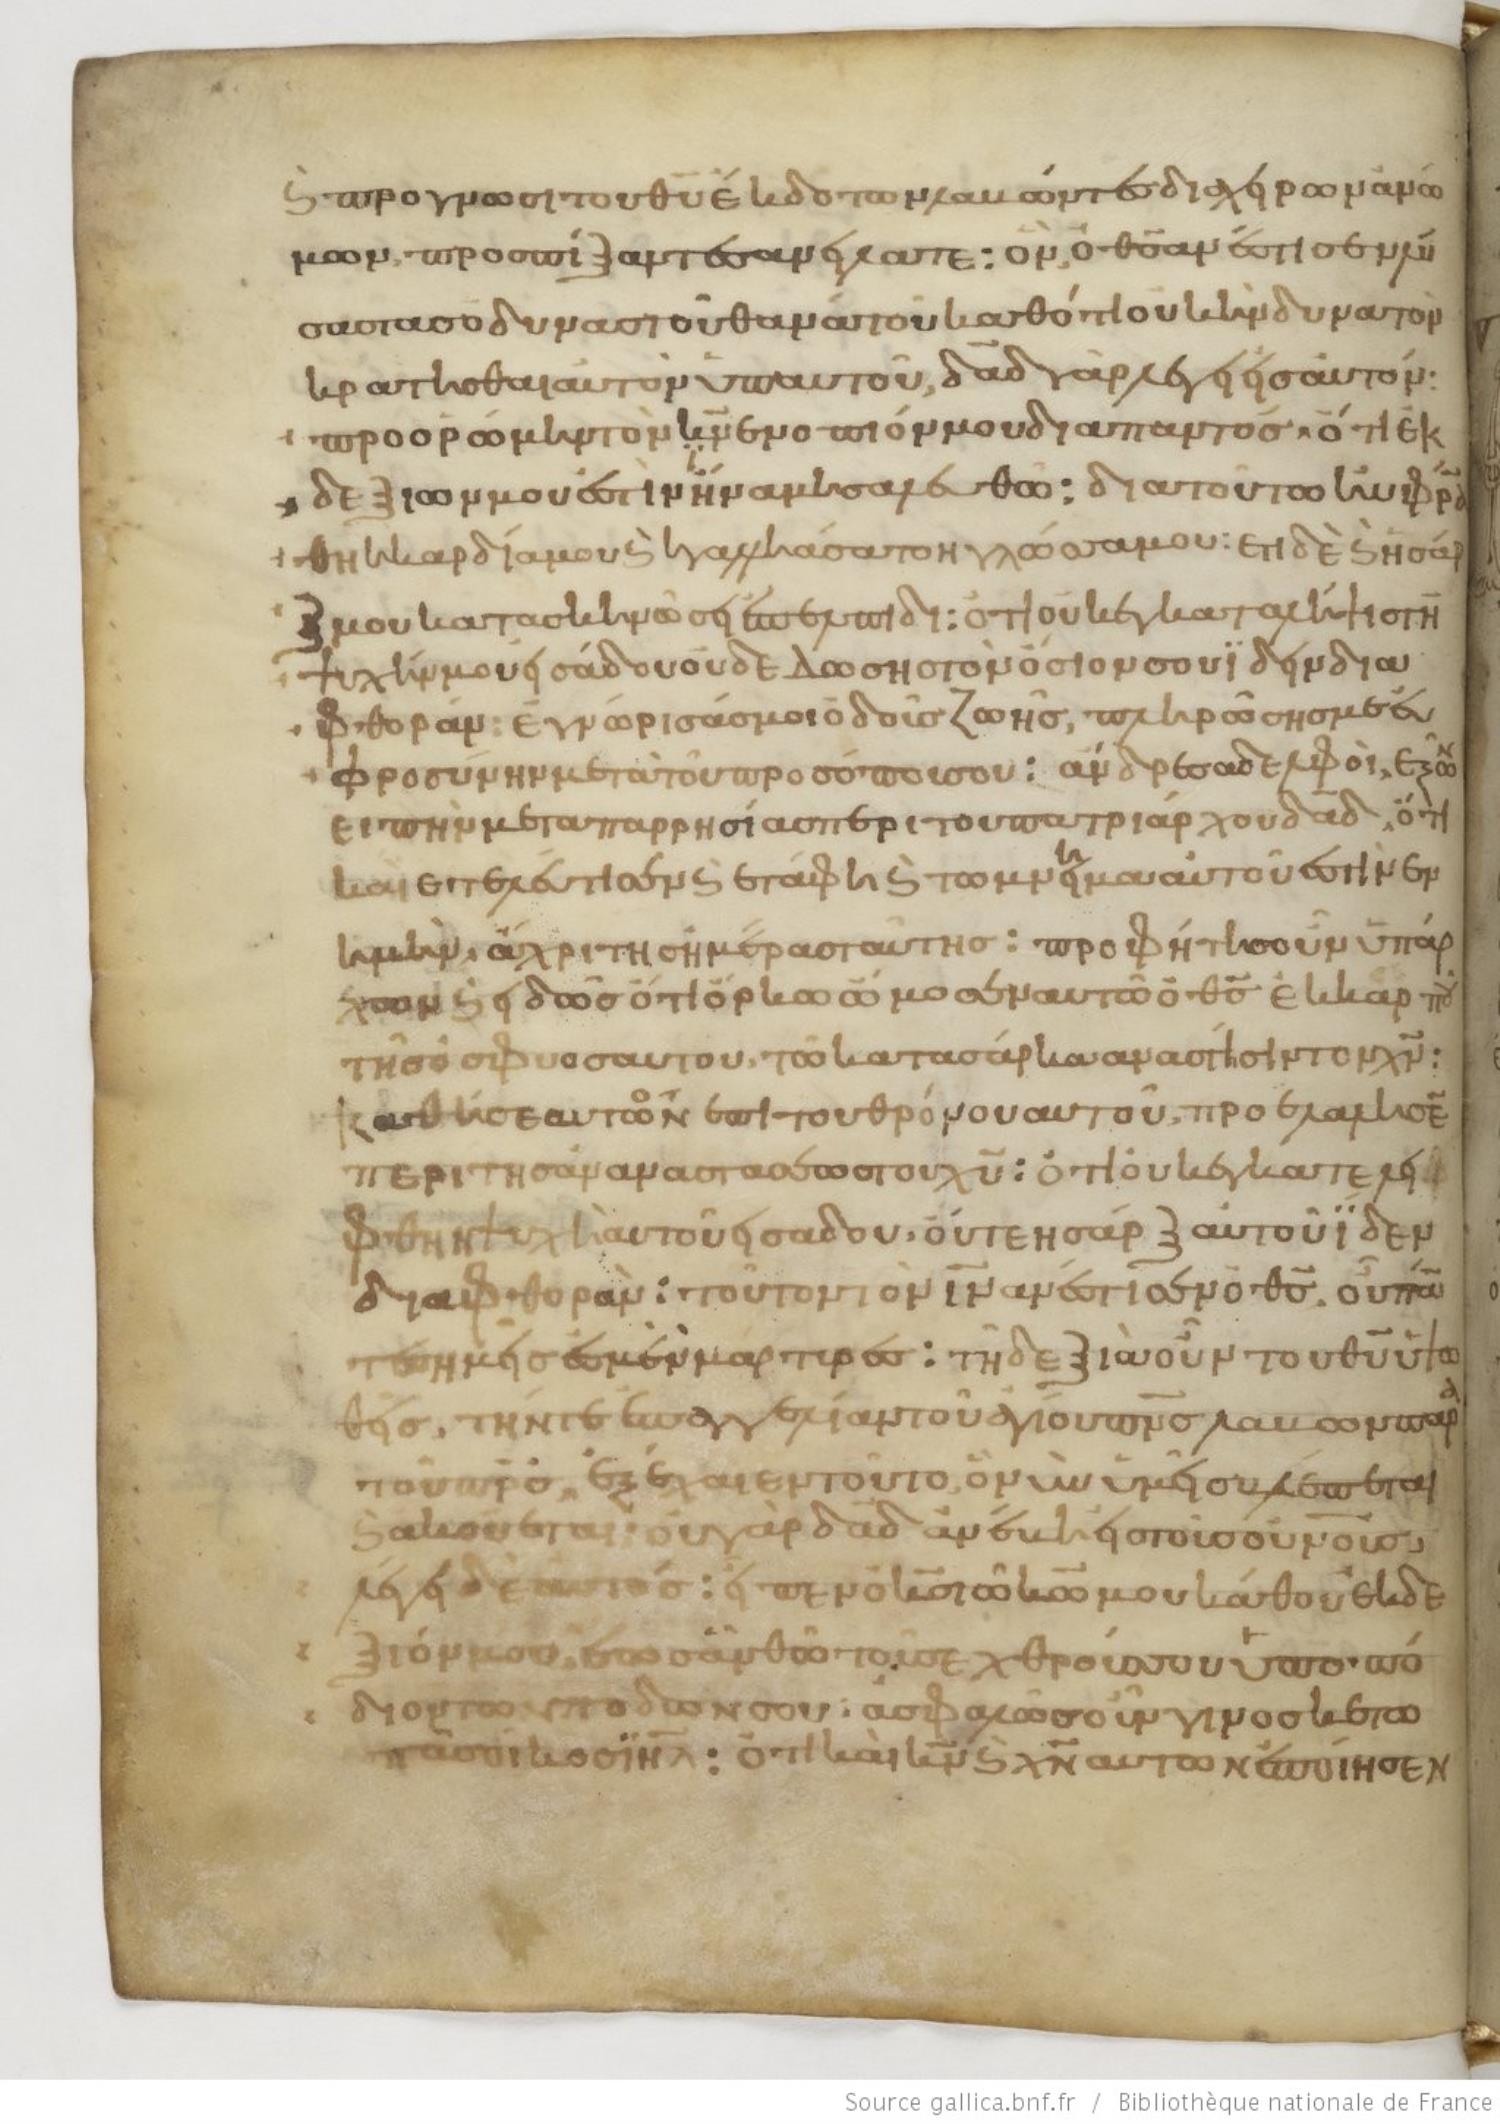 ϗ προγνωσι του θυ έκδοτων λαβώντες διχήρων ἀνώ
μων, προσπίξαντες ανήλατε: ὃν ὁ θς ανέστισεν λύ
σας τας οδυνας τοῦ θανάτου καθότι οὐκ ην δυνατὸν
κρατησθαι αὐτὸν ὑπ αυτοῦ, δᾱδ γὰρ λέγει εἰς αὐτόν:
προορώμην τὸν κν̄ ενοπιόν μου διαπαντός, ὅτι ἐκ
δεξιων μου ἐστὶν ἵνα μη σαλευθῶ: δια τοῦτω ηὐφρά
θη η καρδία μου ϗ ηγαλλιάσατο η γλώσσα μου: ετι δὲ ϗ ἡ σάρ
ξ μου κατασκηνώσει επ ελπιδι: ὅτι οὐκ εγκαταλήψις τὴ
ψυχήν μου εις άδου οὐδε δωσης τὸν ὅσιον σου ϊδειν δια
φθοράν: ἐγνώρισάς μοι ὁδοὺς ζωῆς, πληρώσης με εὐ
φροσύνην μετὰ τοῦ προσόπου σου: ἄνδρες αδελφοὶ, εξὸν
ειπην μετα παρρησίας περι του πατριάρχου δᾱδ, ὅτι
καὶ ετελεύτισεν ϗ ετάφη ϗ τω μνημα αὐτοῦ εστὶν εν
ημὴν, ἄχρι τη σημέρας ταύτης: προφήτης οὖν ὑπάρ
χων ϗ ειδὼς ὅτι ὅρκω ὤμοσεν αυτῶ ὁ θς̄ ἐκ καρπου
της οσφυος αυτου, τὸ κατα σάρκα αναστίσιν τον χν̄:
καθίσε αυτὸν επι του θρόνου αυτοῦ, προελαλησε
περι της αναστασέως του χῡ: ὅτι οὐκ εγκατελεί
φθη η ψυχὴ αυτοῦ εις αδου, οὔτε η σάρξ αὐτοῦ ϊδεν
διαφθοράν: τοῦτον τὸν ιν̄ ανέστισεν ὁ θς̄, οὗ πάν
τες ημεῖς εσμὲν μάρτιρες: τῆ δεξιὰ οὖν του θῡ ὑψω
θεὶς, τήν τε επαγγελίαν τοῦ ἁγίου πνς̄ λαβων παρ
τοῦ πρς, ἐξέχαιεν τοῦτο, ὃν ὑμεῖς βλέπεται
ϗ ακούεται: οὐ γὰρ δᾱδ ἀνέβη εις τοὺς οὐνοὺς,
λέγει δὲ αυτός: εἶπεν ὁ κς̄ τῶ κω̄ μου κάθου ἐκ δε
ξιόν μου, έως ἂν θῶ τοὺς εχθροὺς σου ὑπο πό
διον των ποδων σου: ἀσφαλῶς οὖν γινοσκετω
πᾶς οικος ϊηλ̄: ὅτι καὶ κν̄ ϗ χν̄ αυτων εποίησεν
Source gallica.bnf.fr / Bibliothèque nationale de France